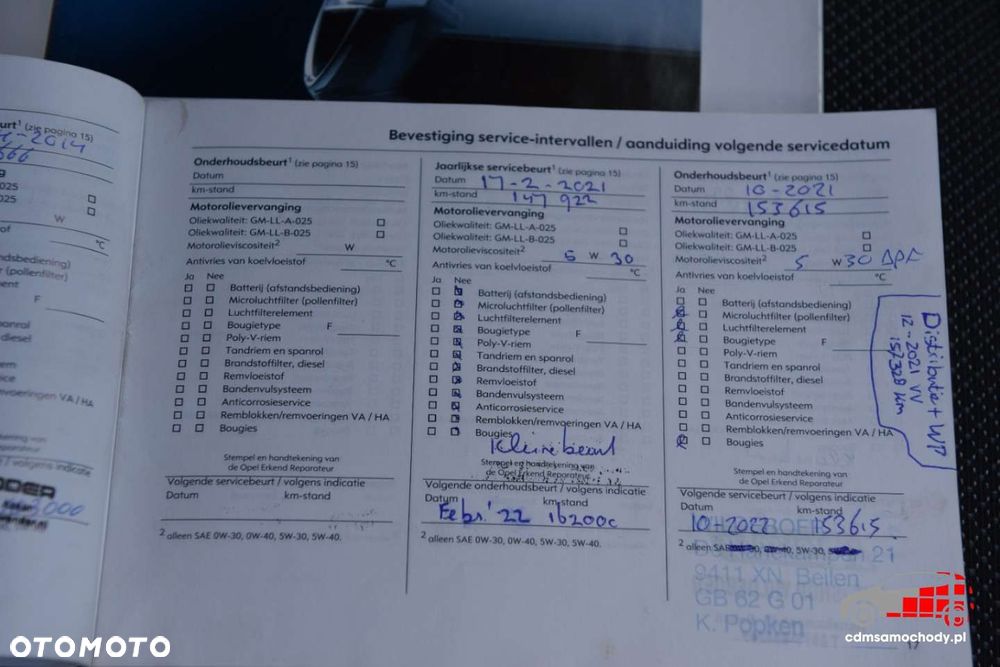 Bevestiging service-intervallen / aanduiding volgende servicedatum
eurt¹ (zie pagina 15)
-2014
666
025
025
W
°C
dsbediening)
(pollenfilter)
ement
F
anrol
diesel
VA / HA
/ volgens indicatie
Onderhoudsbeurt¹ (zie pagina 15)
Datum
km-stand
Motorolievervanging
Oliekwaliteit: GM-LL-A-025
Oliekwaliteit: GM-LL-B-025
Motorolieviscositeit² W
Antivries van koelvloeistof °C
Ja Nee
Batterij (afstandsbediening)
Microluchtfilter (pollenfilter)
Luchtfilterelement
Bougietype F
Poly-V-riem
Tandriem en spanrol
Brandstoffilter, diesel
Remvloeistof
Bandenvulsysteem
Anticorrosieservice
Remblokken/remvoeringen VA / HA
Bougies
Stempel en handtekening van
de Opel Erkend Reparateur
Volgende servicebeurt / volgens indicatie
Datum km-stand
² alleen SAE 0W-30, 0W-40, 5W-30, 5W-40.
Jaarlijkse servicebeurt¹ (zie pagina 15)
Datum 17-2-2021
km-stand 147 922
Motorolievervanging
Oliekwaliteit: GM-LL-A-025
Oliekwaliteit: GM-LL-B-025
Motorolieviscositeit² 5 W 30
Antivries van koelvloeistof °C
Ja Nee
Batterij (afstandsbediening)
Microluchtfilter (pollenfilter)
Luchtfilterelement
Bougietype F
Poly-V-riem
Tandriem en spanrol
Brandstoffilter, diesel
Remvloeistof
Bandenvulsysteem
Anticorrosieservice
Remblokken/remvoeringen VA / HA
Bougies
Kleine beurt
Stempel en handtekening van
de Opel Erkend Reparateur
Volgende onderhoudsbeurt / volgens indicatie
Datum km-stand
Febr. '22 16200c
² alleen SAE 0W-30, 0W-40, 5W-30, 5W-40.
Onderhoudsbeurt¹ (zie pagina 15)
Datum 10-2021
km-stand 153615
Motorolievervanging
Oliekwaliteit: GM-LL-A-025
Oliekwaliteit: GM-LL-B-025
Motorolieviscositeit² 5 W 30 DPF
Antivries van koelvloeistof °C
Ja Nee
Batterij (afstandsbediening)
Microluchtfilter (pollenfilter)
Luchtfilterelement
Bougietype F
Poly-V-riem
Tandriem en spanrol
Brandstoffilter, diesel
Remvloeistof
Bandenvulsysteem
Anticorrosieservice
Remblokken/remvoeringen VA / HA
Bougies
Distributie + WP
12-2021 VV
157328 km
Stempel en handtekening van
de Opel Erkend Reparateur
Volgende servicebeurt / volgens indicatie
Datum km-stand
10-2022 153615
² alleen 5W-30,
21
9411 XN Beilen
GB 62 G 01
K. Popken
17
OTOMOTO
cdmsamochody.pl